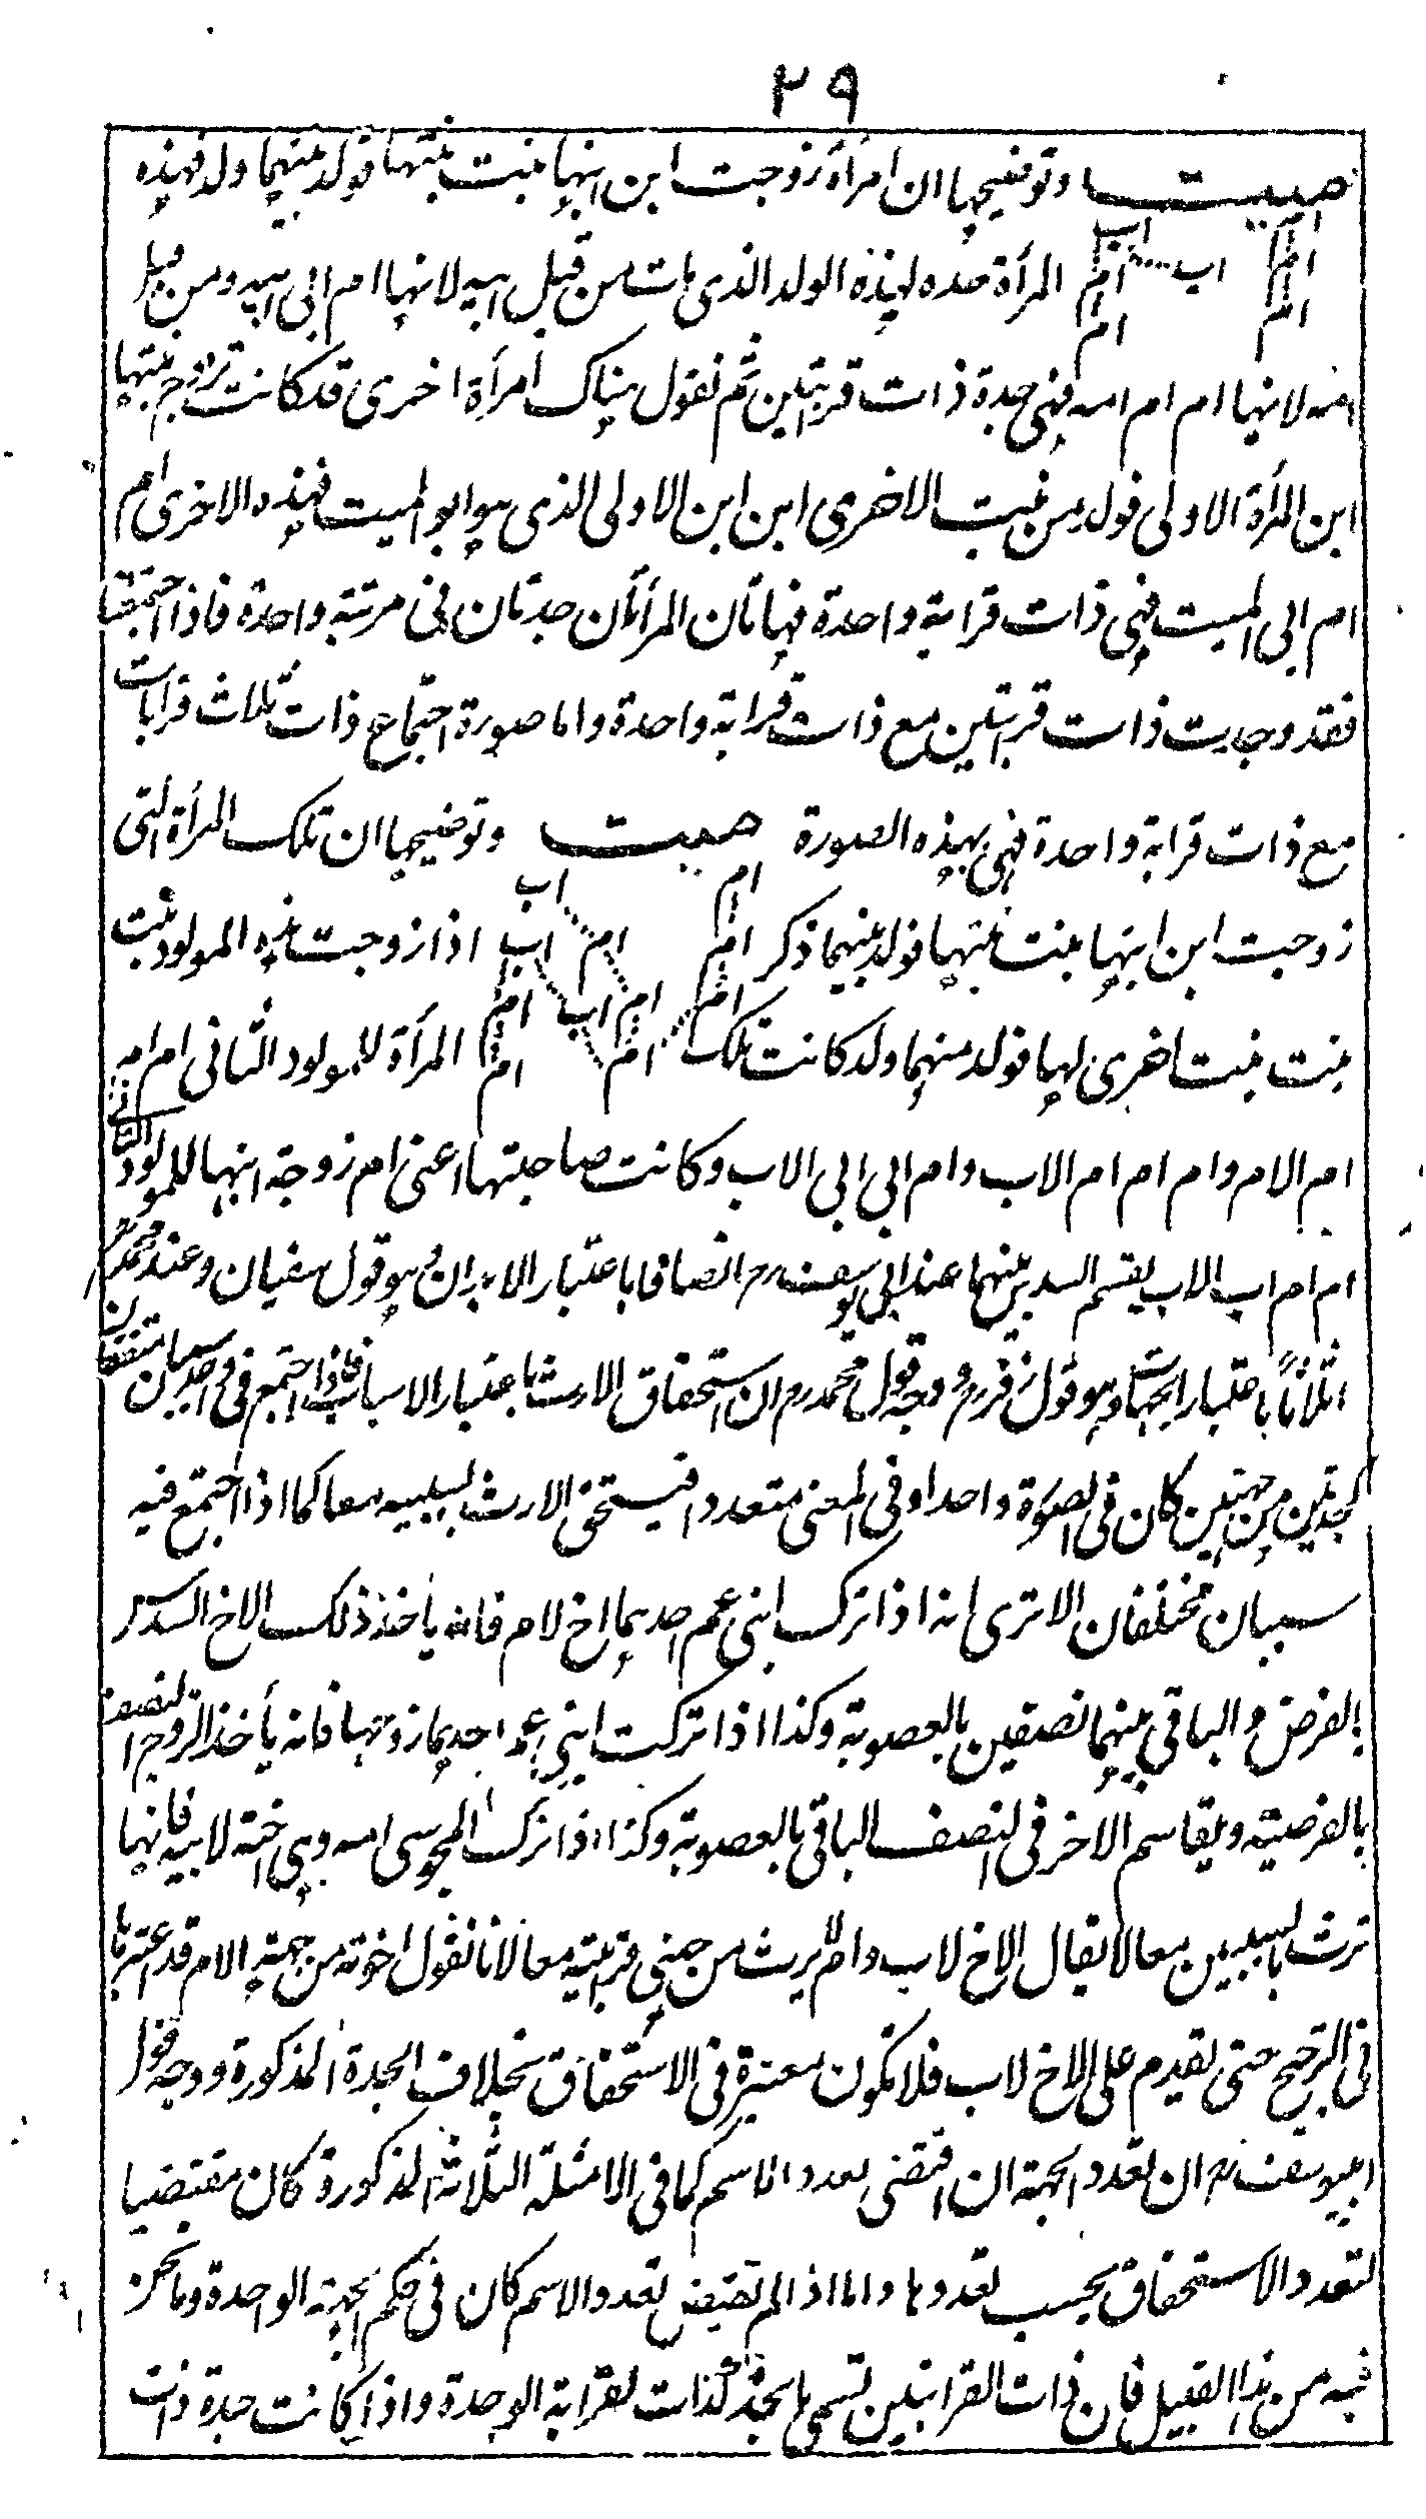 ٢٩
ميت وتوضيحها ان امرأة زوجت ابن ابنها بنت بنتها فولد بينهما ولد فهذه
ام اب
ام اب ام المرأة جده لهذه الولد الذي مات من قبل ابيه لانها ام ابي ابيه ومن قبل
ام ام
امه لانها ام ام امه فهي جدة ذات قرابتين ثم نقول هناك امرأة اخرى قد كانت تزوج بنتها
ابن المرأة الاولى فولد من بنت الاخرى ابن ابن الاولى الذي هو ابو الميت فهذه الاخرى ام
ام ابي الميت فهي ذات قرابة واحدة فهاتان المرأتان جدتان في مرتبة واحدة فاذا اجتمعتا
فقد وجدت ذات قرابتين مع ذات قرابة واحدة واما صورة اجتماع ذات ثلاث قرابات
مع ذات قرابة واحدة فهي بهذه الصورة ميت وتوضيحها ان تلك المرأة التي
ام اب
زوجت ابن ابنها بنت بنتها فولد بينهما ذكر ام ام اب اذا زوجت هذه المولود بنت
ام ام اب ام
بنت بنت اخرى لها فولد منهما ولد كانت تلك ام ام المرأة للمولود الثاني ام ام
ام الام وام ام ام الاب وام ابي ابي الاب وكانت صاحبتها اعني ام زوجة ابنها للمولود الثاني
ام ام اب الاب يقسم السدس بينهما عند ابي يوسف رح انصافا باعتبار الابدان وهو قول سفيان وعند محمد رح
اثلاثاً باعتبار الجهات وهو قول زفر رح ووجه قول محمد رح ان استحقاق الارث باعتبار الاسباب فاذا اجتمع في واحد سببان متفقان
كجدتين من جهتين كان في الصورة واحدا وفي المعنى متعددا فيستحق الارث بسببيه معا كما اذا اجتمع فيه
سببان مختلفان الا ترى انه اذا ترك ابني عم احدهما اخ لام فانه يأخذ ذلك الاخ السدس
بالفرض والباقي بينهما نصفين بالعصوبة وكذا اذا تركت ابني عم احدهما زوجها فانه يأخذ الزوج النصف
بالفرضية ويقاسم الاخر في النصف الباقي بالعصوبة وكذا اذا ترك المجوسي امه وهي اخته لابيه فانها
ترث بالسببين معا لا يقال الاخ لاب وام لا يرث من جهتي قرابتيه معا لانا نقول اخوته من جهة الام قد اعتبرنا
في الترجيح حتى يقدم على الاخ لاب فلا تكون معتبرة في الاستحقاق بخلاف الجدة المذكورة ووجه قول
ابي يوسف رح ان تعدد الجهة ان اقتضى تعدد الاسم كما في الامثلة الثلاثة المذكورة كان مقتضيا
لتعدد الاستحقاق بحسب تعددها واما اذا لم تقتض تعدد الاسم كان في حكم الجهة الواحدة وما نحن
فيه من هذا القبيل فان ذات القرابتين تسمى بالجدة كذات القرابة الواحدة واذا كانت جدة ذات